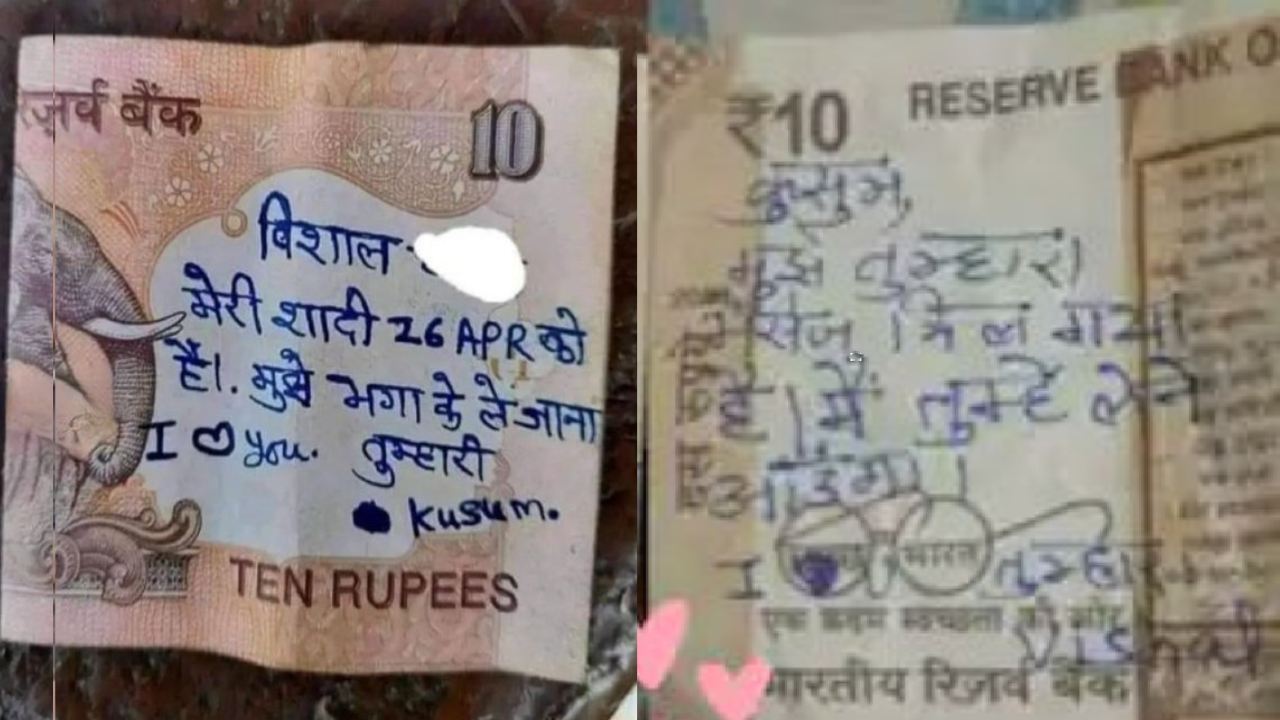 रिज़र्व बैंक
10
विशाल
मेरी शादी 26 APR को
है।. मुझे भगा के ले जाना
I you. तुम्हारी
kusum.
TEN RUPEES
₹10 RESERVE BANK O
कुसुम,
मुझे तुम्हारा
मेसेज मिल गया
है। मैं तुम्हें लेने
आऊंगा।
I तुम्हारा
भारत
एक कदम स्वच्छता की ओर
Vishal
भारतीय रिज़र्व बैंक